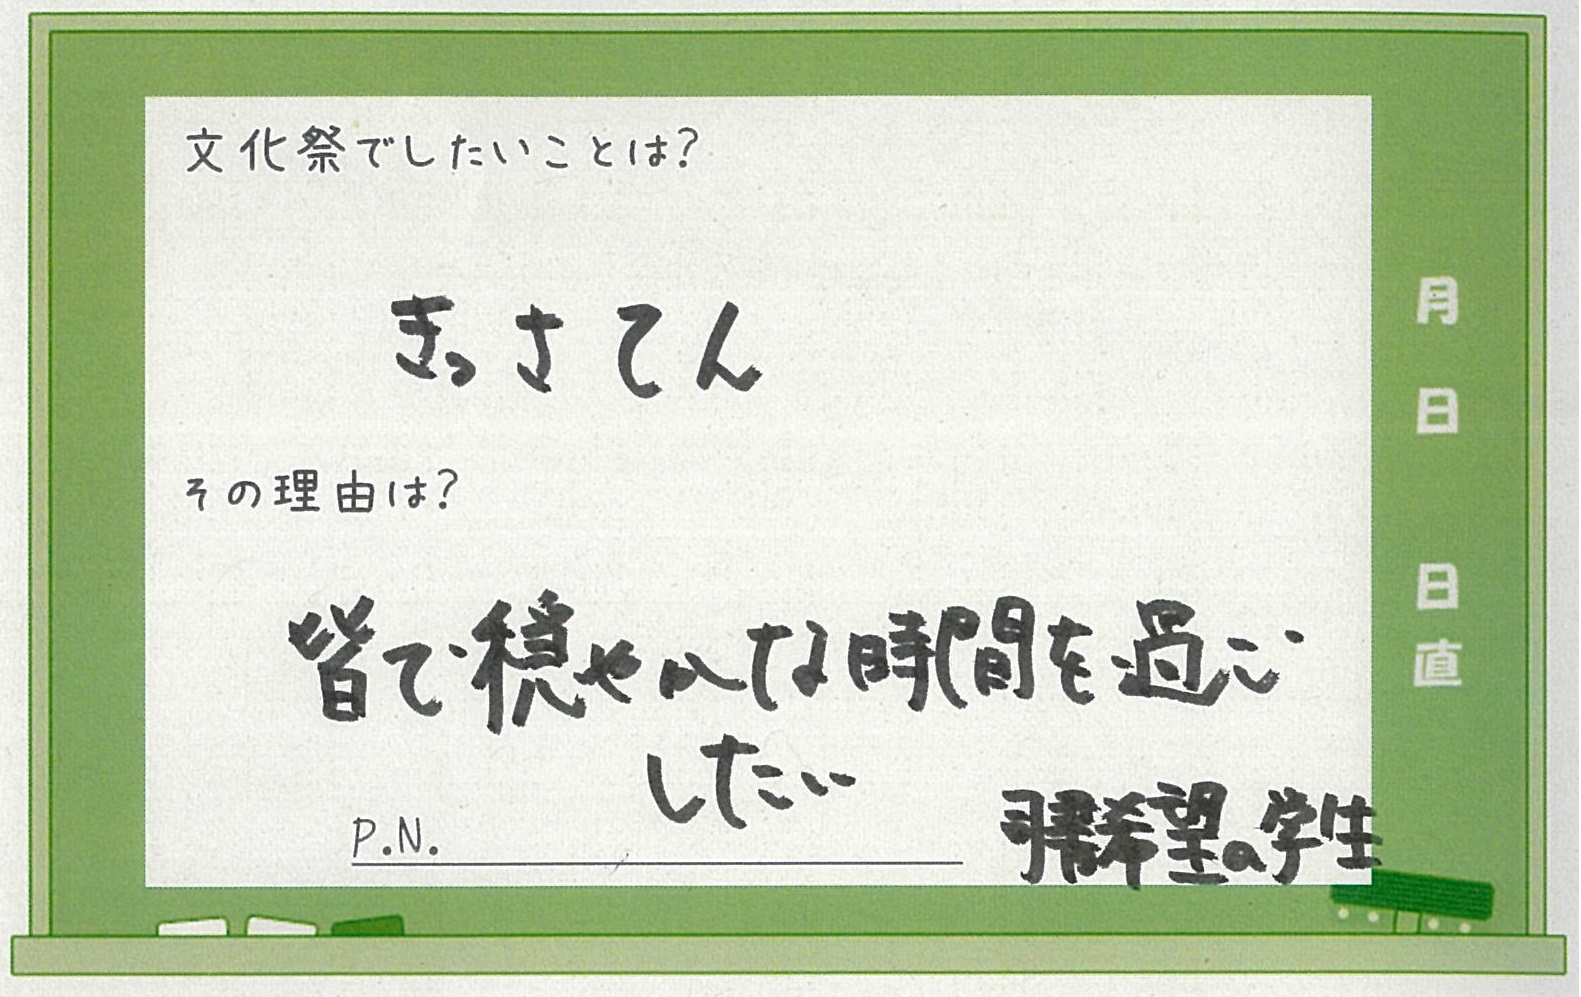 文化祭でしたいことは?
きっさてん
その理由は?
皆で穏やかな時間を過ご
したい
P.N.
希望の学生
月
日
日
直